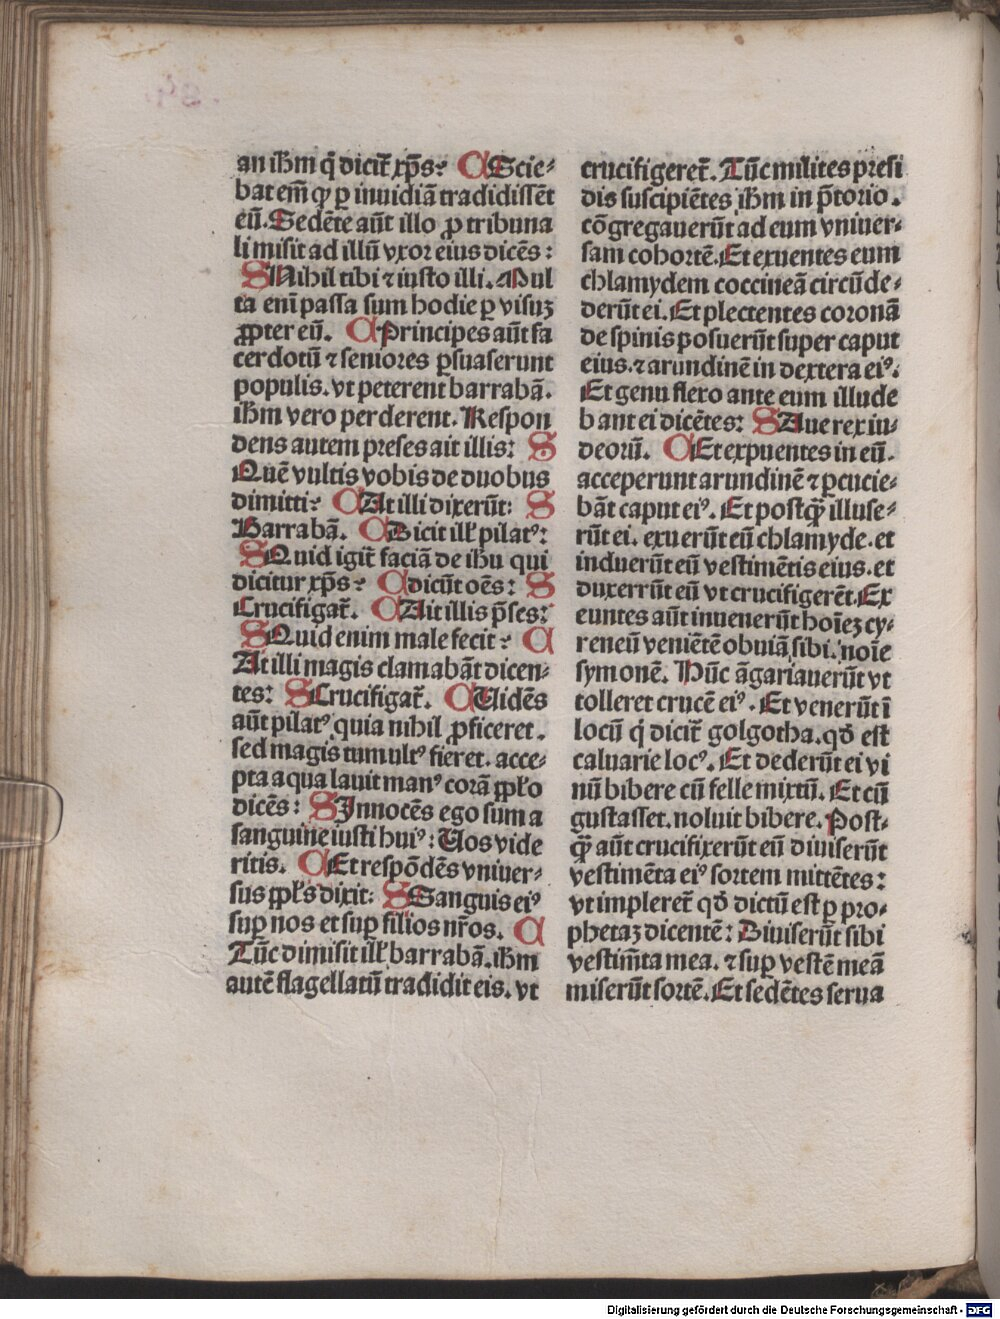 an ihm̄ q̄ dicit̄ xp̄s? C Scie⸗
bat em̄ ꝙ ꝑ inuidiā tradidissēt
eū. Sedēte aūt illo ꝓ tribuna
li misit ad illū vxor eius dicēs:
S Nihil tibi ⁊ iusto illi. Mul
ta enī passa sum hodie ꝑ visuꝫ
ꝓpter eū. C Principes aūt sa
cerdotū ⁊ seniores ꝑsuaserunt
populis. vt peterent barrabā.
ihm̄ vero perderent. Respon
dens autem preses ait illis: S
Quē vultis vobis de duobus
dimitti? C At illi dixerūt: S
Barrabā. C Dicit ill' pilatꝰ:
S Quid igit̄ faciā de ihu qui
dicitur xp̄s? C dicūt oēs: S
Crucifigat̄. C Ait illis p̄ses:
S Quid enim male fecit? C
At illi magis clamabāt dicen⸗
tes: S Crucifigat̄. C Uidēs
aūt pilatꝰ quia nihil ꝓficeret.
sed magis tumultꝰ fieret. acce⸗
pta aqua lauit manꝰ corā ppl'o
dicēs: S Innocēs ego sum a
sanguine iusti huiꝰ: Uos vide
ritis. C Et respōdēs vniuer⸗
sus ppl's dixit: S Sanguis eiꝰ
suꝑ nos et suꝑ filios nr̄os. C
Tūc dimisit ill' barrabā. ihm̄
autē flagellatū tradidit eis. vt
crucifigeret̄. Tūc milites presi
dis suscipiētes ihm̄ in p̄torio.
cōgregauerūt ad eum vniuer⸗
sam cohortē. Et exuentes eum
chlamydem coccineā circūde⸗
derūt ei. Et plectentes coronā
de spinis posuerūt super caput
eius. ⁊ arundinē in dextera eiꝰ.
Et genu flexo ante eum illude
bant ei dicētes: S Aue rex iu⸗
deorū. C Et expuentes in eū.
acceperunt arundinē ⁊ ꝑcucie⸗
bāt caput eiꝰ. Et postꝙ̄ illuse⸗
rūt ei. exuerūt eū chlamyde. et
induerūt eū vestimētis eius. et
duxerrūt eū vt crucifigerēt. Ex
euntes aūt inuenerūt hoīeꝫ cy⸗
reneū veniētē obuiā sibi. noīe
symonē. Hūc āgariauerūt vt
tolleret crucē eiꝰ. Et venerūt ī
locū q̄ dicit̄ golgotha. qđ est
caluarie locꝰ. Et dederūt ei vi
nū bibere cū felle mixtū. Et cū
gustasset. noluit bibere. Post⸗
ꝙ̄ aūt crucifixerūt eū diuiserūt
vestimēta eiꝰ sortem mittētes:
vt impleret̄ qđ dictū est ꝑ pro⸗
phetaꝫ dicentē: Diuiserūt sibi
vestim̄ta mea. ⁊ suꝑ vestē meā
miserūt sortē. Et sedētes serua
Digitalisierung gefördert durch die Deutsche Forschungsgemeinschaft - DFG